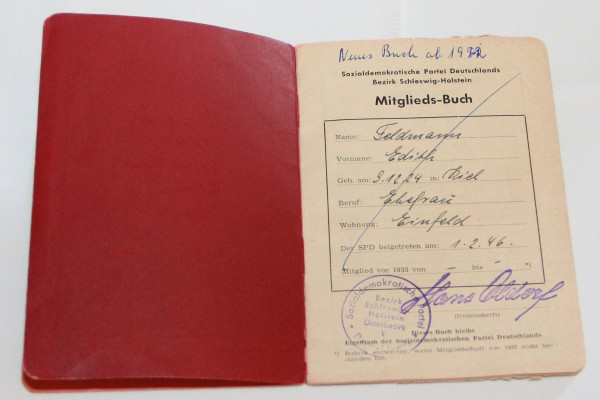 Neues Buch ab 1972
Sozialdemokratische Partei Deutschlands
Bezirk Schleswig-Holstein
Mitglieds-Buch
Name: Feldmann
Vorname: Edith
Geb. am: 9.12.24 in: Kiel
Beruf: Ehefrau
Wohnung: Einfeld
Der SPD beigetreten am: 1.2.46.
Mitglied vor 1933 von bis *)
Hans
(Unterschrift)
Sozialdemokratische Partei
Bezirk
Schleswig
Holstein
Unterbezirk
V
Dieses Buch bleibt
Eigentum der Sozialdemokratischen Partei Deutschlands
*) Rubrik entwerten, wenn Mitgliedschaft vor 1933 nicht be-
standen hat.